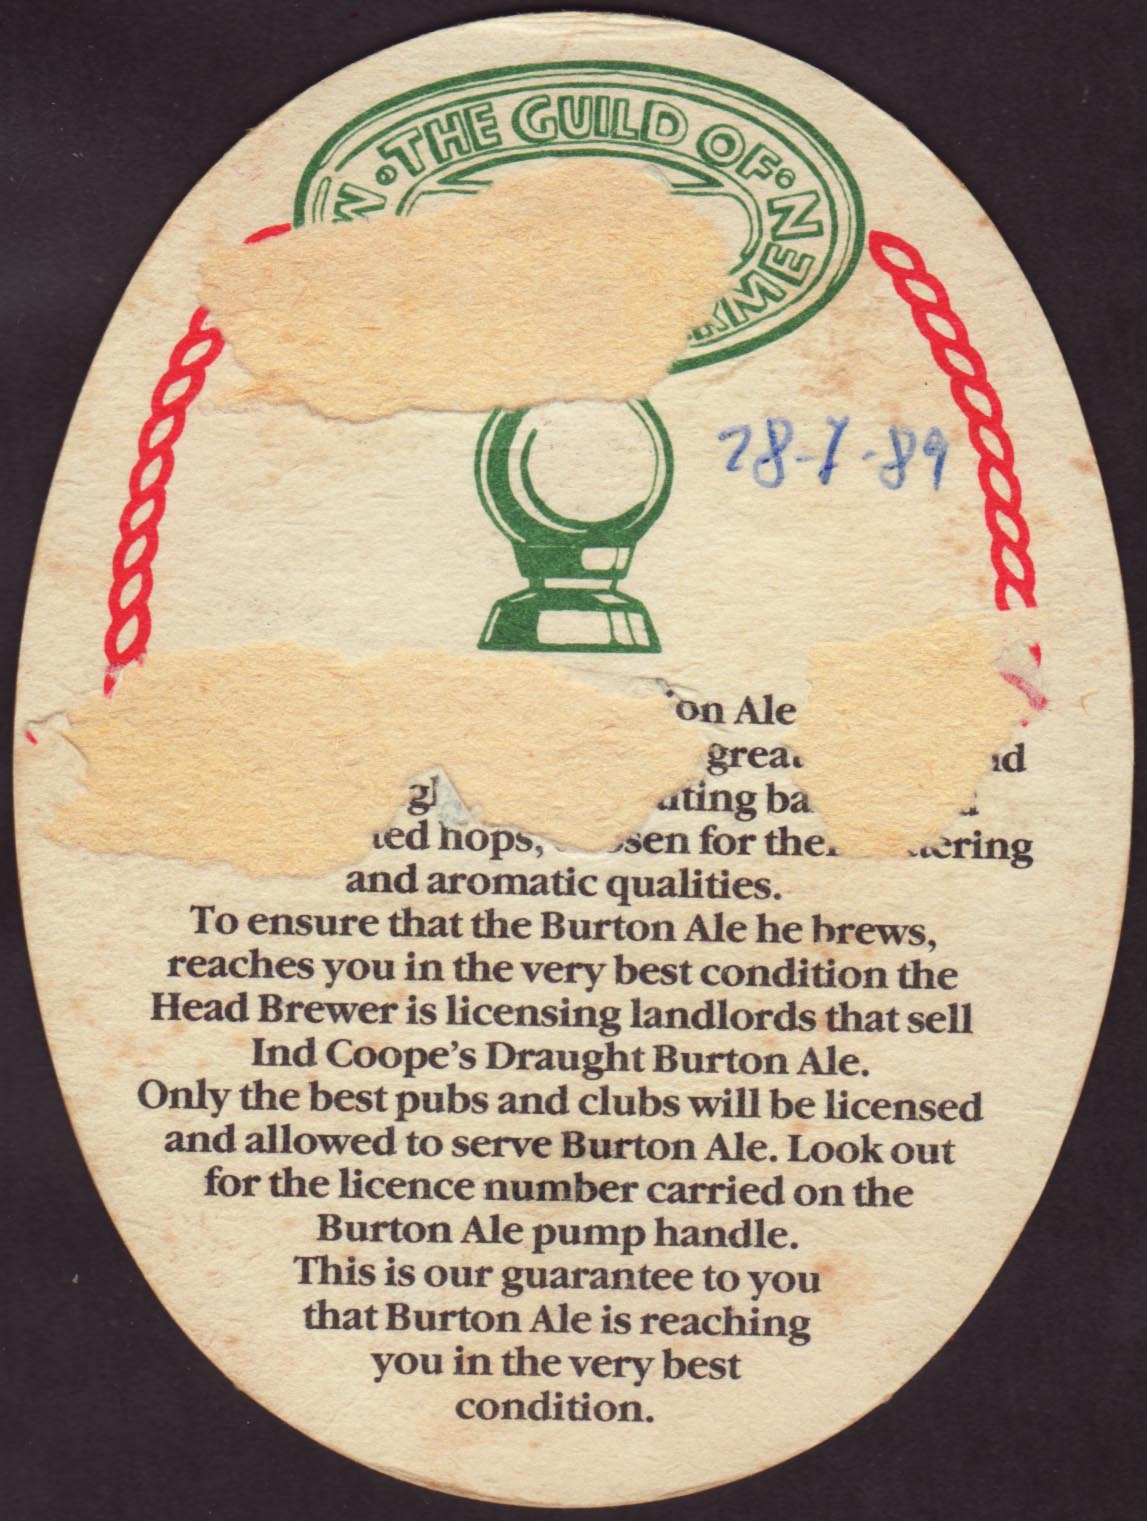 THE GUILD OF
28-7-89
Ale
hops, for
and aromatic qualities.
To ensure that the Burton Ale he brews,
reaches you in the very best condition the
Head Brewer is licensing landlords that sell
Ind Coope's Draught Burton Ale.
Only the best pubs and clubs will be licensed
and allowed to serve Burton Ale. Look out
for the licence number carried on the
Burton Ale pump handle.
This is our guarantee to you
that Burton Ale is reaching
you in the very best
condition.